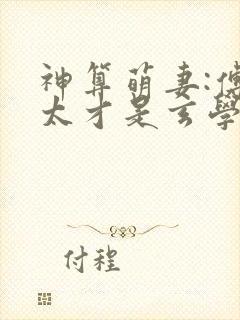 神算萌妻:傅
太才是玄學
付程